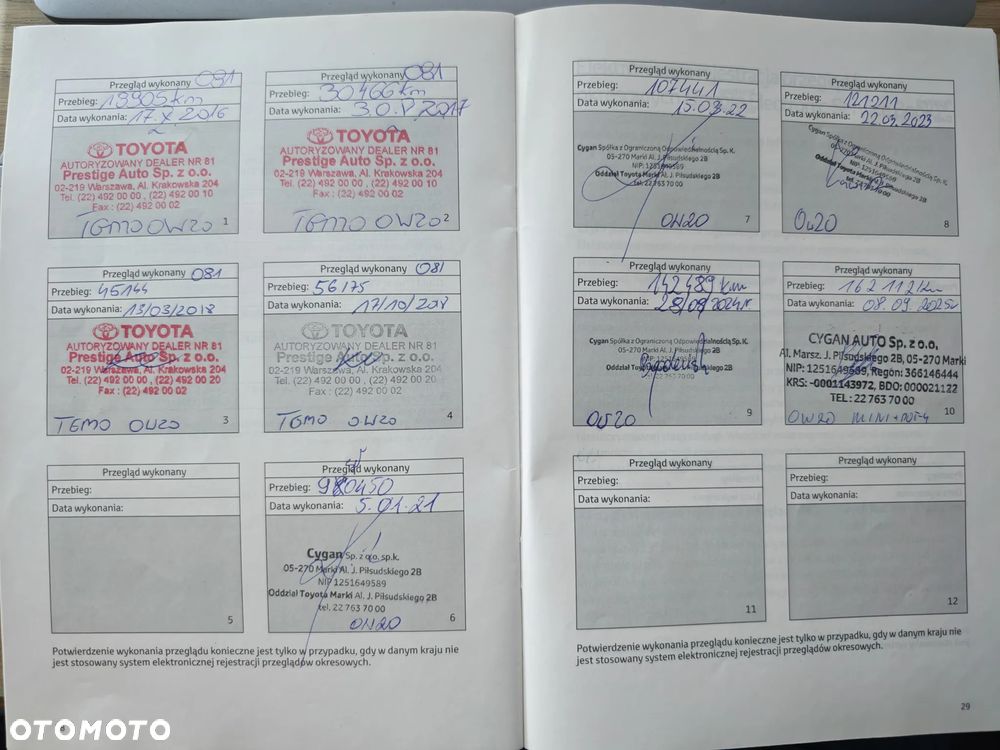 Przegląd wykonany 081
Przebieg: 13905 km
Data wykonania: 17.X 2016
TOYOTA
AUTORYZOWANY DEALER NR 81
Prestige Auto Sp. z o.o.
02-219 Warszawa, Al. Krakowska 204
Tel. (22) 492 00 00 , (22) 492 00 10
Fax : (22) 492 00 02
TEMO OW20
1
Przegląd wykonany 081
Przebieg: 30466 km
Data wykonania: 30.V.2017
TOYOTA
AUTORYZOWANY DEALER NR 81
Prestige Auto Sp. z o.o.
02-219 Warszawa, Al. Krakowska 204
Tel. (22) 492 00 00 , (22) 492 00 10
Fax : (22) 492 00 02
TEMO OW20
2
Przegląd wykonany 081
Przebieg: 45144
Data wykonania: 13/03/2018
TOYOTA
AUTORYZOWANY DEALER NR 81
Prestige Auto Sp. z o.o.
02-219 Warszawa, Al. Krakowska 204
Tel. (22) 492 00 00 , (22) 492 00 20
Fax : (22) 492 00 02
TEMO OW20
3
Przegląd wykonany 081
Przebieg: 56175
Data wykonania: 17/10/2018
TOYOTA
AUTORYZOWANY DEALER NR 81
Prestige Auto Sp. z o.o.
02-219 Warszawa, Al. Krakowska 204
Tel. (22) 492 00 00 , (22) 492 00 20
Fax : (22) 492 00 02
TEMO OW20
4
Przegląd wykonany
Przebieg:
Data wykonania:
5
Przegląd wykonany
Przebieg:
Data wykonania: 5.01.21
Cygan Sp. z o.o. sp.k.
05-270 Marki Al. J. Piłsudskiego 2B
NIP 1251649589
Oddział Toyota Marki Al. J. Piłsudskiego 2B
tel. 22 763 70 00
OW20
6
Potwierdzenie wykonania przeglądu konieczne jest tylko w przypadku, gdy w danym kraju nie
jest stosowany system elektronicznej rejestracji przeglądów okresowych.
Przegląd wykonany
Przebieg: 107441
Data wykonania: 15.03.22
Cygan Spółka z Ograniczoną Odpowiedzialnością Sp. K.
05-270 Marki Al. J. Piłsudskiego 2B
NIP: 1251649589
Oddział Toyota Marki Al. J. Piłsudskiego 2B
tel. 22 763 70 00
OW20
7
Przegląd wykonany
Przebieg: 121211
Data wykonania: 22.03.2023
Cygan Spółka z Ograniczoną Odpowiedzialnością Sp. K.
05-270 Marki Al. J. Piłsudskiego 2B
NIP: 1251649589
Oddział Toyota Marki Al. J. Piłsudskiego 2B
tel. 22 763 70 00
OW20
8
Przegląd wykonany
Przebieg: 142489 km
Data wykonania:
Cygan Spółka z Ograniczoną Odpowiedzialnością Sp. K.
05-270 Marki Al. J. Piłsudskiego 2B
OW20
9
Przegląd wykonany
Przebieg: 162112 km
Data wykonania: 08.09.2025r
CYGAN AUTO Sp. z o.o.
Al. Marsz. J. Piłsudskiego 2B, 05-270 Marki
NIP: 1251649589, Regon: 366146444
KRS: -0001143972, BDO: 000021122
TEL: 22 763 70 00
OW20 MINI
10
Przegląd wykonany
Przebieg:
Data wykonania:
11
Przegląd wykonany
Przebieg:
Data wykonania:
12
Potwierdzenie wykonania przeglądu konieczne jest tylko w przypadku, gdy w danym kraju nie
jest stosowany system elektronicznej rejestracji przeglądów okresowych.
29
OTOMOTO